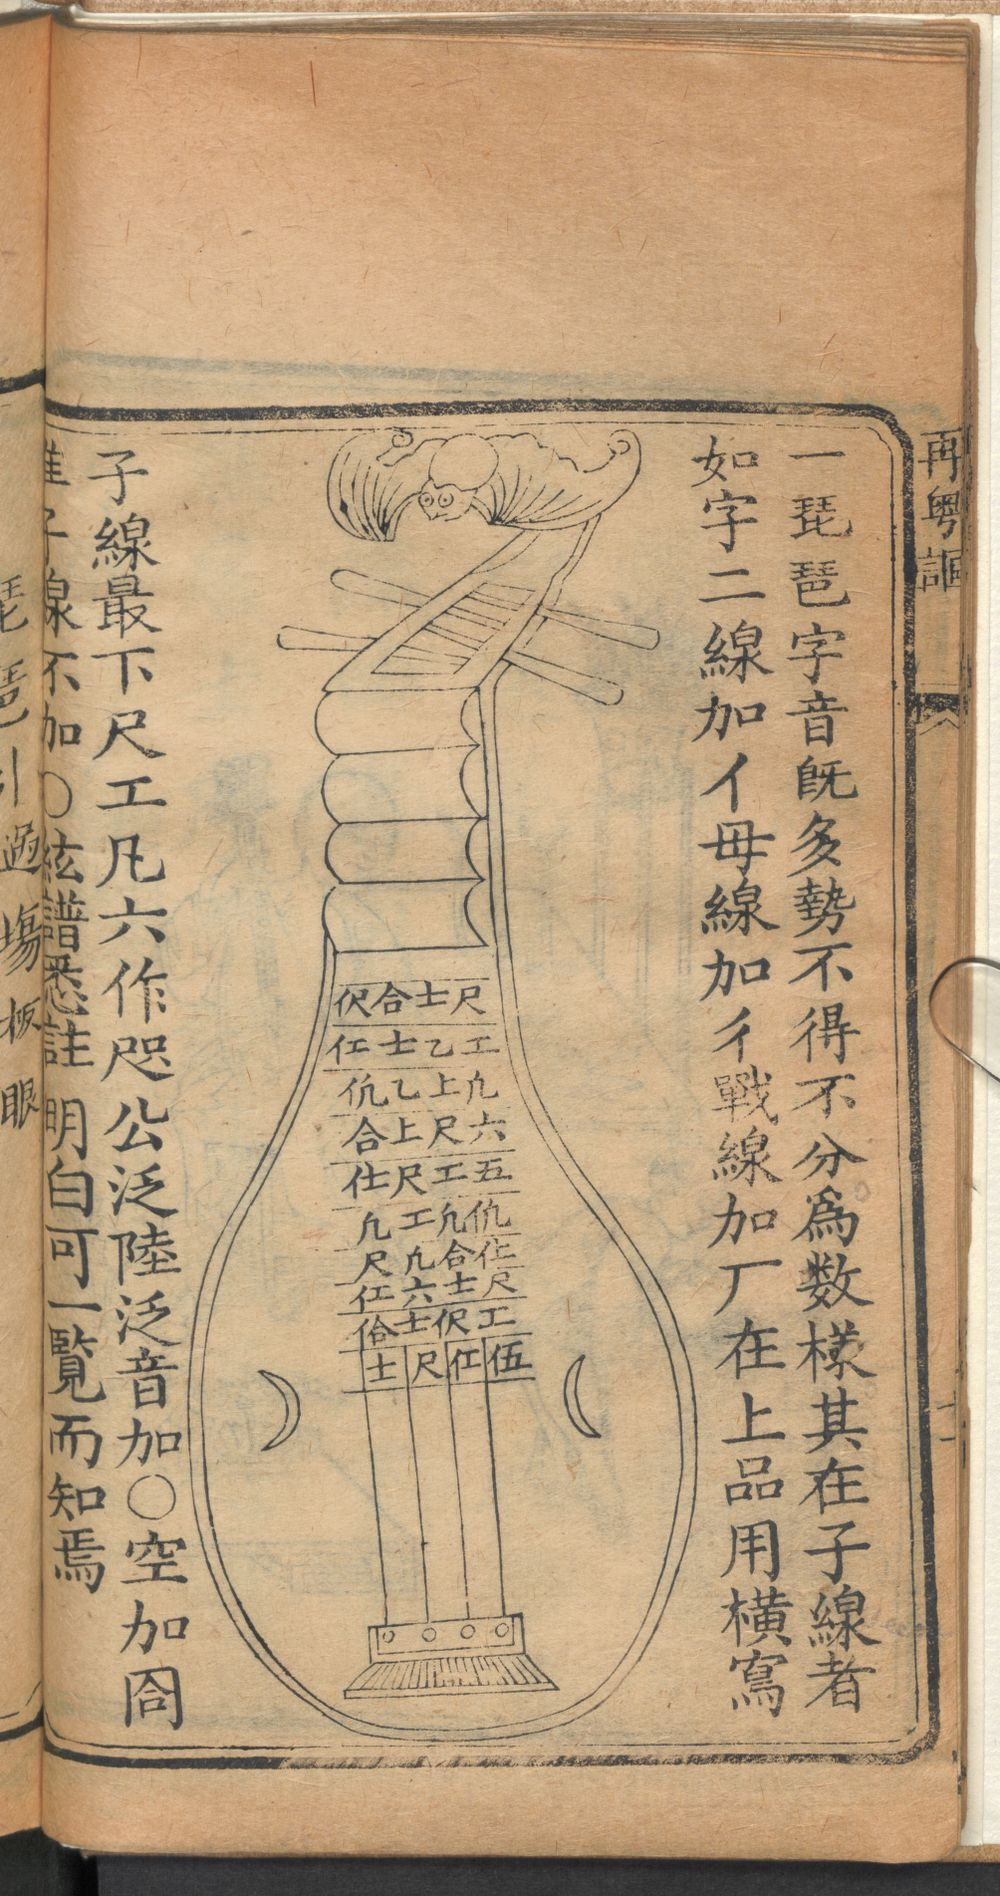 再粤謳
一琵琶字音旣多勢不得不分爲数樣其在子線者
如字二線加亻母線加彳戰線加厂在上品用横寫
伬合士尺
仜士乙工
仉乙上凢
合上尺六
仕尺工五
凢工凢仉
尺凢合仩
仜六士尺
佮士伬工
士尺仜伍
子線最下尺工凡六作咫公泛陸泛音加○空加
子線不加○絃譜悉註明白可一覽而知焉
琵琶引過塲板眼